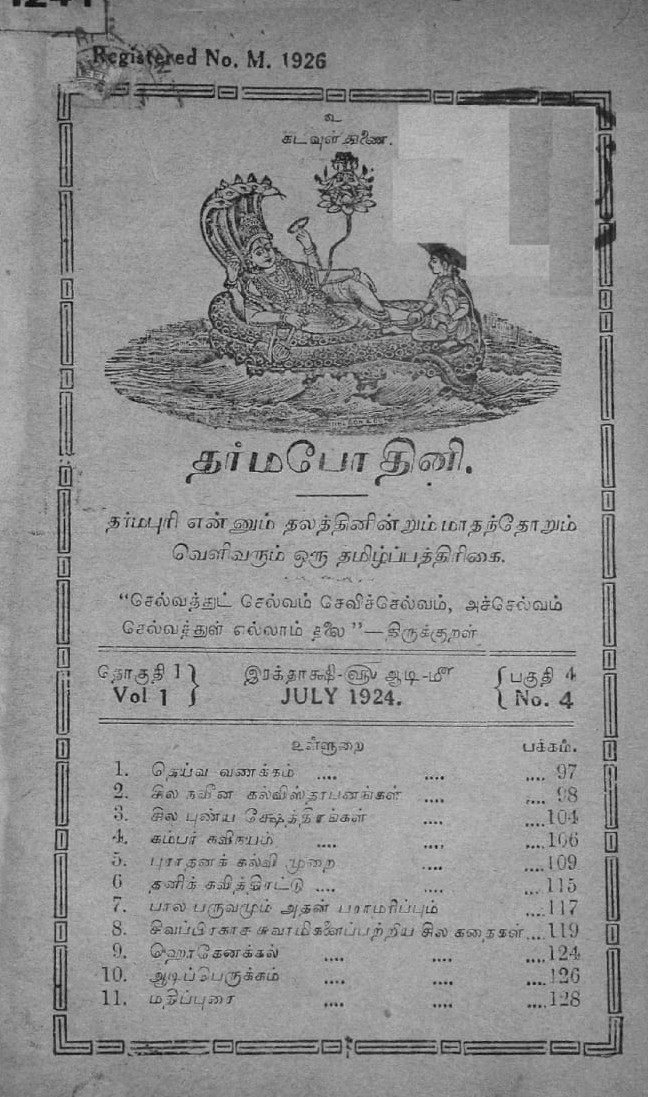 1241
Registered No. M. 1926
உ
கடவுள் துணை.
தர்மபோதினி.
தர்மபுரி என்னும் தலத்தினின்றும் மாதந்தோறும்
வெளிவரும் ஒரு தமிழ்ப்பத்திரிகை.
“செல்வத்துட் செல்வம் செவிச்செல்வம், அச்செல்வம்
செல்வத்துள் எல்லாம் தலை”—திருக்குறள்
தொகுதி 1 } இரக்தாக்ஷி-௵ ஆடி-௴ { பகுதி 4
Vol 1 JULY 1924. No. 4
உள்ளுறை பக்கம்.
1. தெய்வ வணக்கம் .... .... .... 97
2. சில நவீன கல்விஸ்தாபனங்கள் .... .... 98
3. சில புண்ய க்ஷேத்திரங்கள் .... ....104
4. கம்பர் கவிநயம் .... .... ....106
5. புராதனக் கல்வி முறை .... ....109
6 தனிக் கவித்திரட்டு .... .... ....115
7. பால பருவமும் அதன் பராமரிப்பும் ....117
8. சிவப்பிரகாச சுவாமிகளைப்பற்றிய சில கதைகள்....119
9. ஹொகேனக்கல் .... .... ....124
10. ஆடிப்பெருக்கம் .... .... ....126
11. மதிப்புரை .... .... ....128